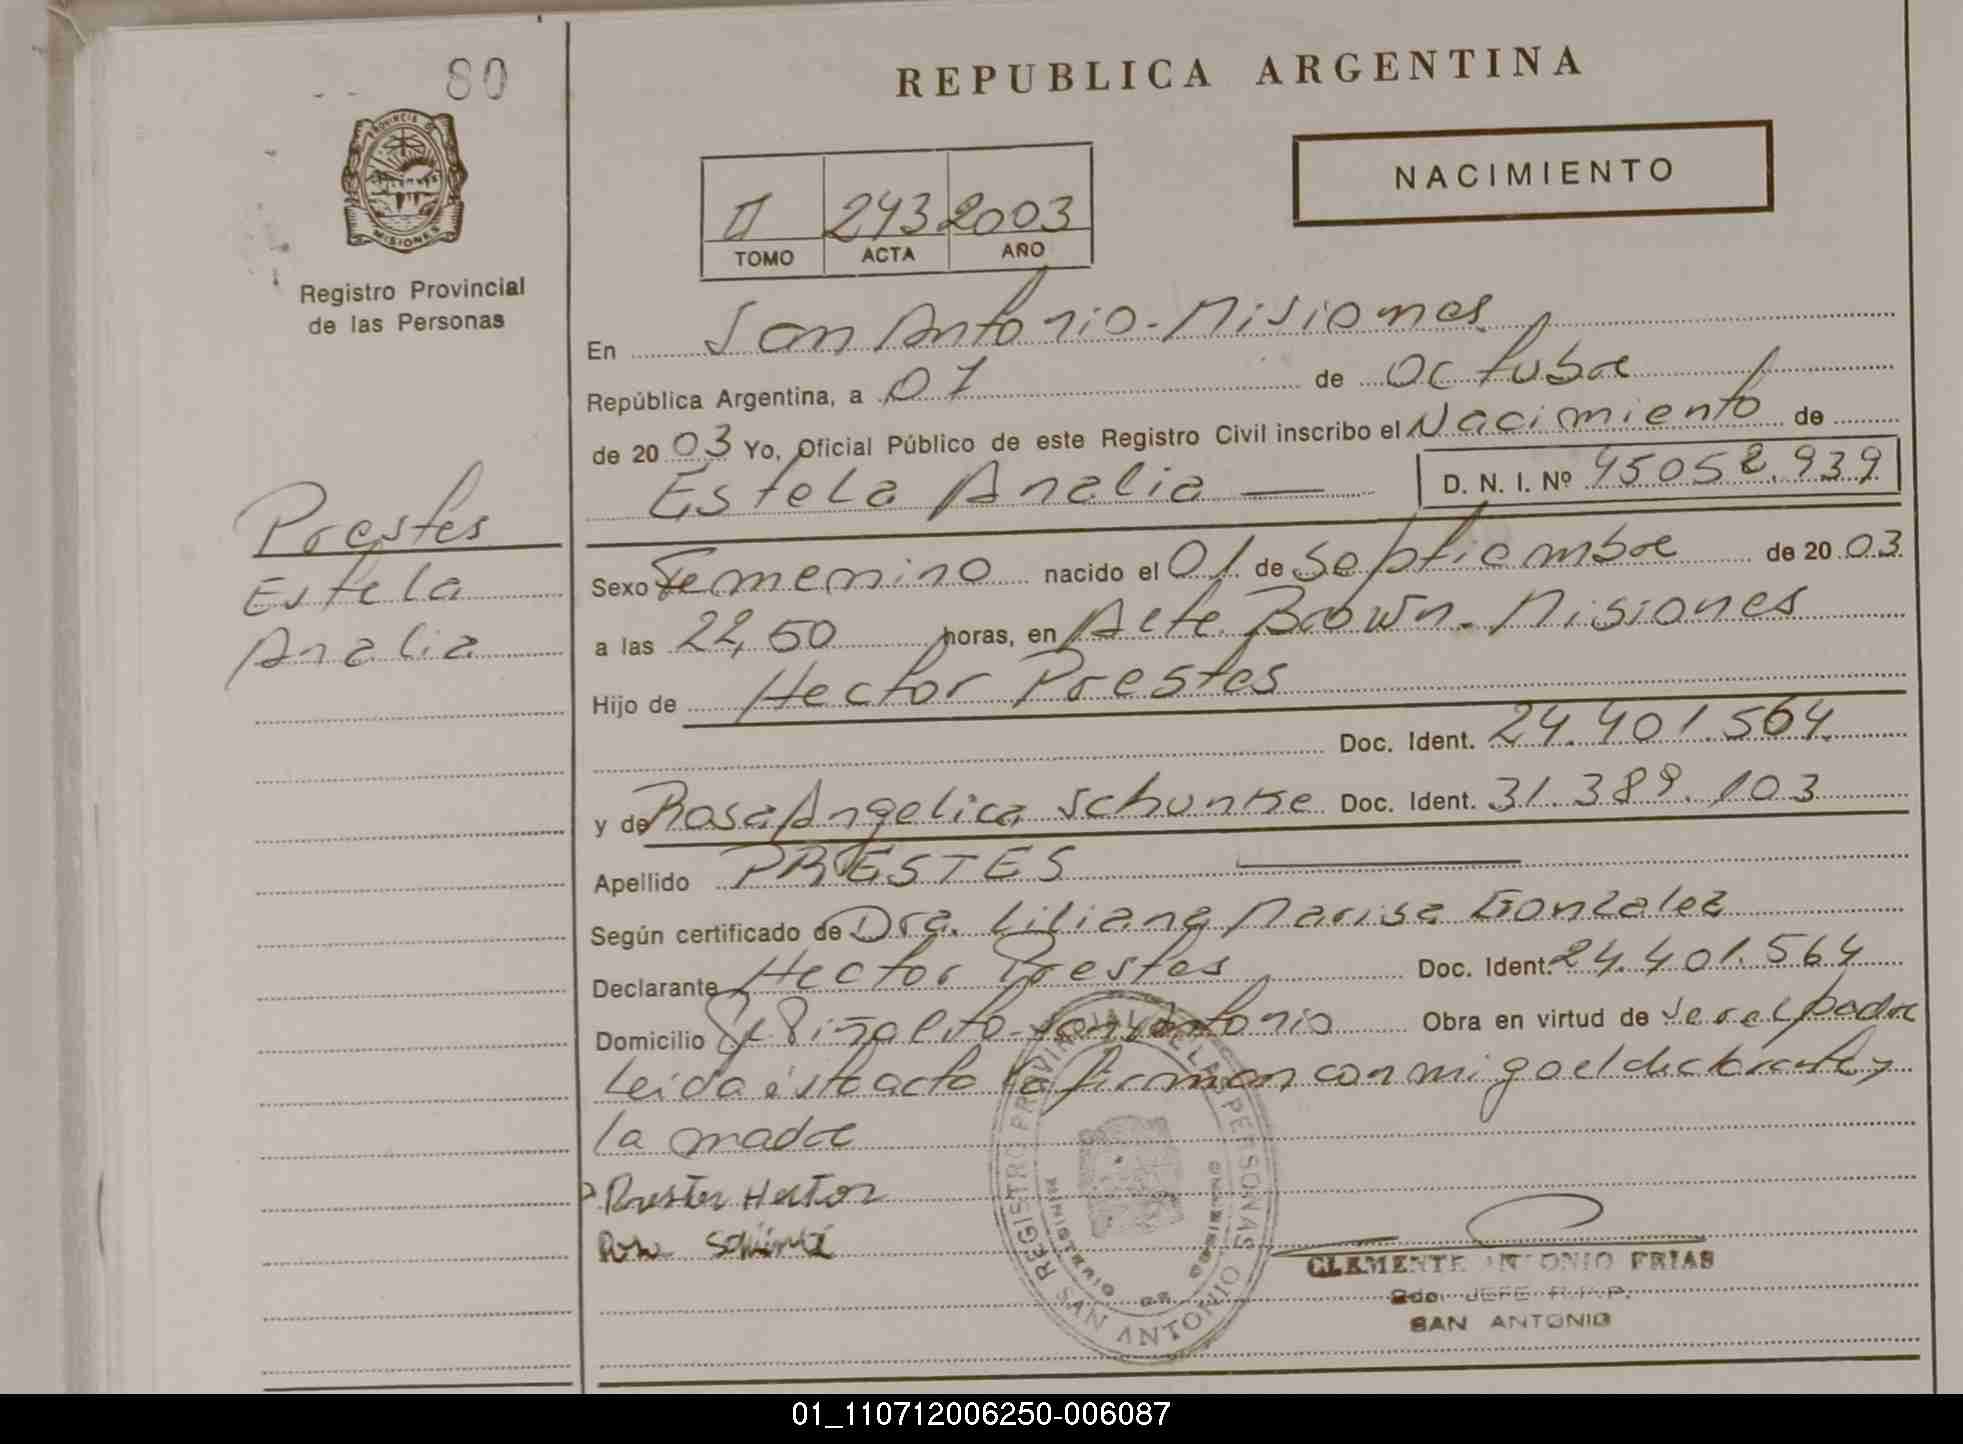 80
REPUBLICA ARGENTINA
PROVINCIA DE
MISIONES
Registro Provincial
de las Personas
NACIMIENTO
II 243 2003
TOMO ACTA AÑO
En San Antonio - Misiones
República Argentina, a 01 de Octubre
de 20 03 Yo, Oficial Público de este Registro Civil inscribo el Nacimiento de
Estela Analia — D. N. I. Nº 45052.939
Prestes
Estela
Analia
Sexo Femenino nacido el 01 de Septiembre de 20 03
a las 22,50 horas, en Alte. Brown - Misiones
Hijo de Hector Prestes
Doc. Ident. 24.401.564
y de Rosa Angelica Schunke Doc. Ident. 31.389.103
Apellido PRESTES
Según certificado de Dra. Liliana Marisa Gonzalez
Declarante Hector Prestes Doc. Ident. 24.401.564
Domicilio San Antonio Obra en virtud de ser el padre
Leida ésta acta la firman conmigo el declarante y
la madre
Prestes Hector
Rosa
REGISTRO PROVINCIAL DE LAS PERSONAS
MINISTERIO DE GOBIERNO
SAN ANTONIO
CLEMENTE ANTONIO FRIAS
2do. JEFE R.P.P.
SAN ANTONIO
01_110712006250-006087